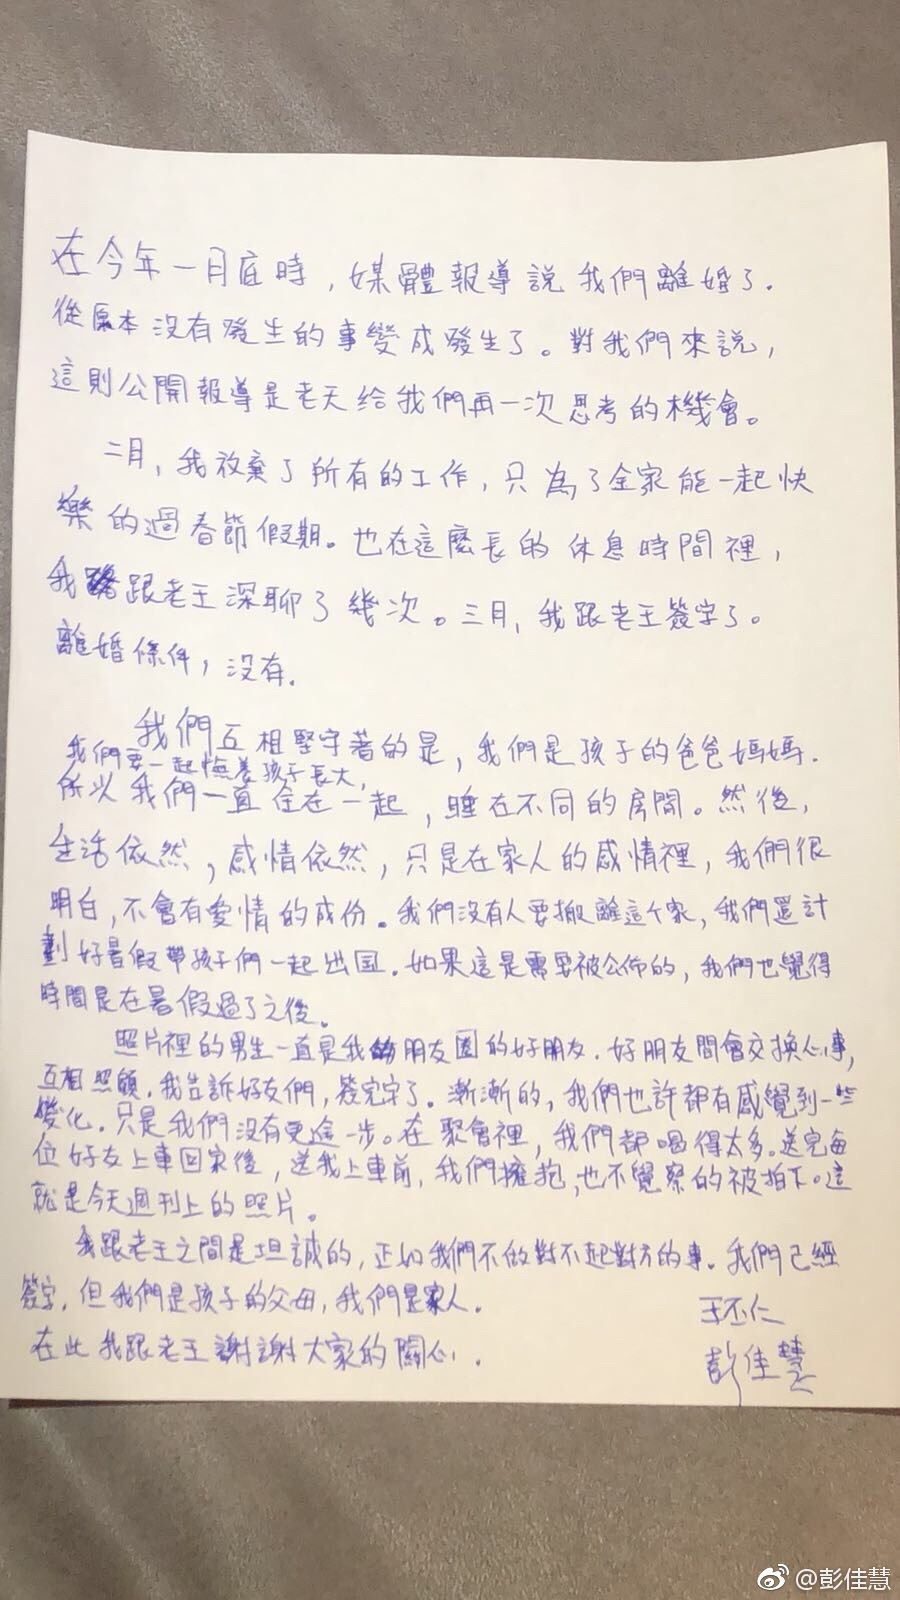 在今年一月底時，媒體報導說我們離婚了.
從原本沒有發生的事變成發生了。對我們來說，
這則公開報導是老天給我們再一次思考的機會。
二月，我放棄了所有的工作，只為了全家能一起快
樂的過春節假期。也在這麼長的休息時間裡，
我跟老王深聊了幾次。三月，我跟老王簽字了。
離婚條件，沒有.
我們互相堅守著的是，我們是孩子的爸爸媽媽.
我們要一起撫養孩子長大，
所以我們一直住在一起，睡在不同的房間。然後，
生活依然，感情依然，只是在家人的感情裡，我們很
明白，不會有愛情的成份。我們沒有人要搬離這个家，我們還計
劃好暑假帶孩子們一起出国.如果這是需要被公佈的，我們也覺得
時間是在暑假過了之後。
照片裡的男生一直是我朋友圈的好朋友.好朋友間會交換心事，
互相照顧.我告訴好友們，簽完字了.漸漸的，我們也許都有感覺到一些
變化.只是我們沒有更進一步。在聚會裡，我們都喝得太多。送完每
位好友上車回家後，送我上車前，我們擁抱，也不覺察的被拍下。這
就是今天週刊上的照片。
我跟老王之間是坦誠的，正如我們不做對不起對方的事.我們已經
簽字，但我們是孩子的父母，我們是家人.
王丕仁
在此我跟老王謝謝大家的關心.
彭佳慧
@彭佳慧